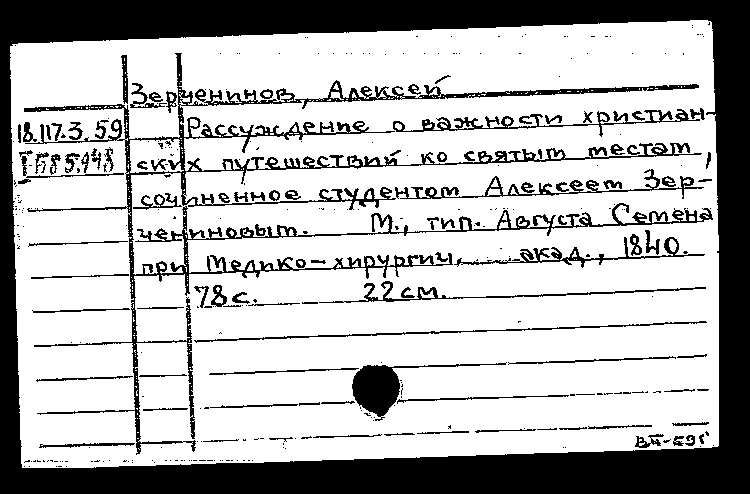 Зерченинов, Алексей
18.117.3.59 Рассуждение о важности христиан-
ских путешествий ко святым местам,
сочиненное студентом Алексеем Зер-
чениновым. М., тип. Августа Семена
при Медико-хирургич. акад., 1840.
78 с. 22 см.